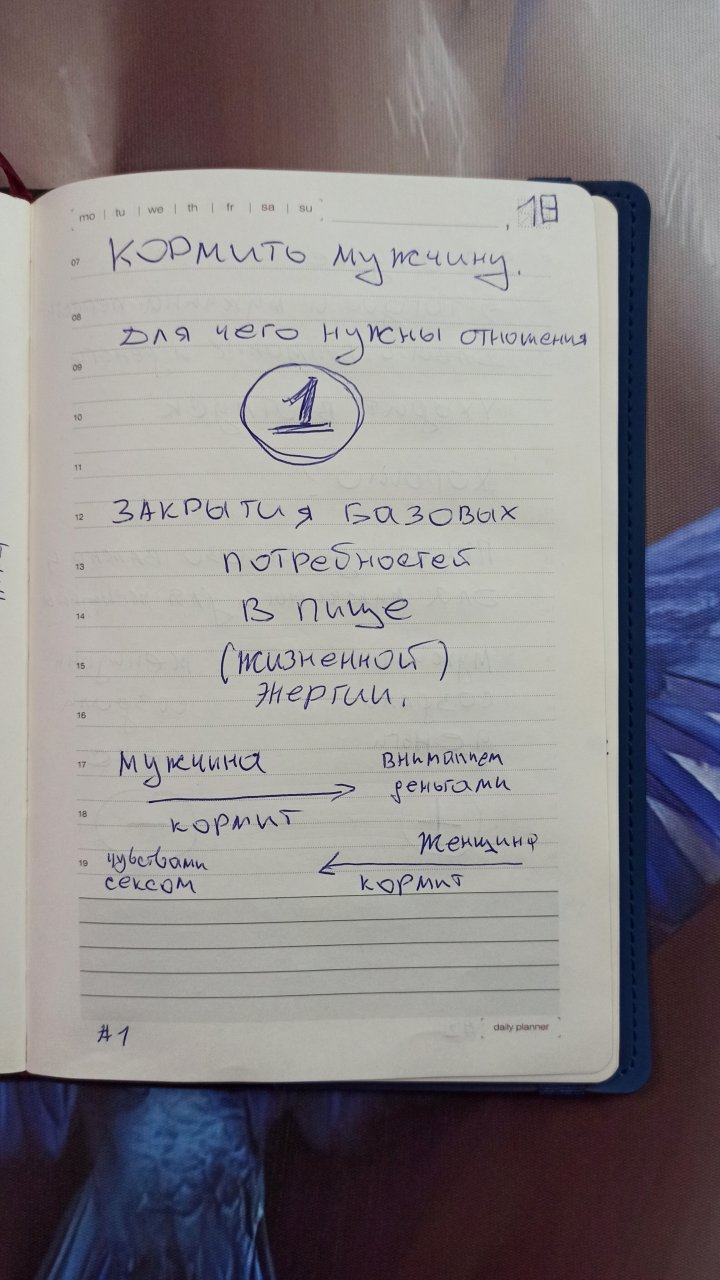 mo | tu | we | th | fr | sa | su
, 18
07 КОРМИТЬ мужчину.
08 Для чего нужны отношения
09
10 1
11
12 ЗАКРЫТИЯ БАЗОВЫХ
13 потребностей
14 В пище
15 (жизненной)
энергии.
16
17 мужчина вниманием
деньгами
18 кормит
Женщина
19 чувствами
сексом кормит
#1 daily planner